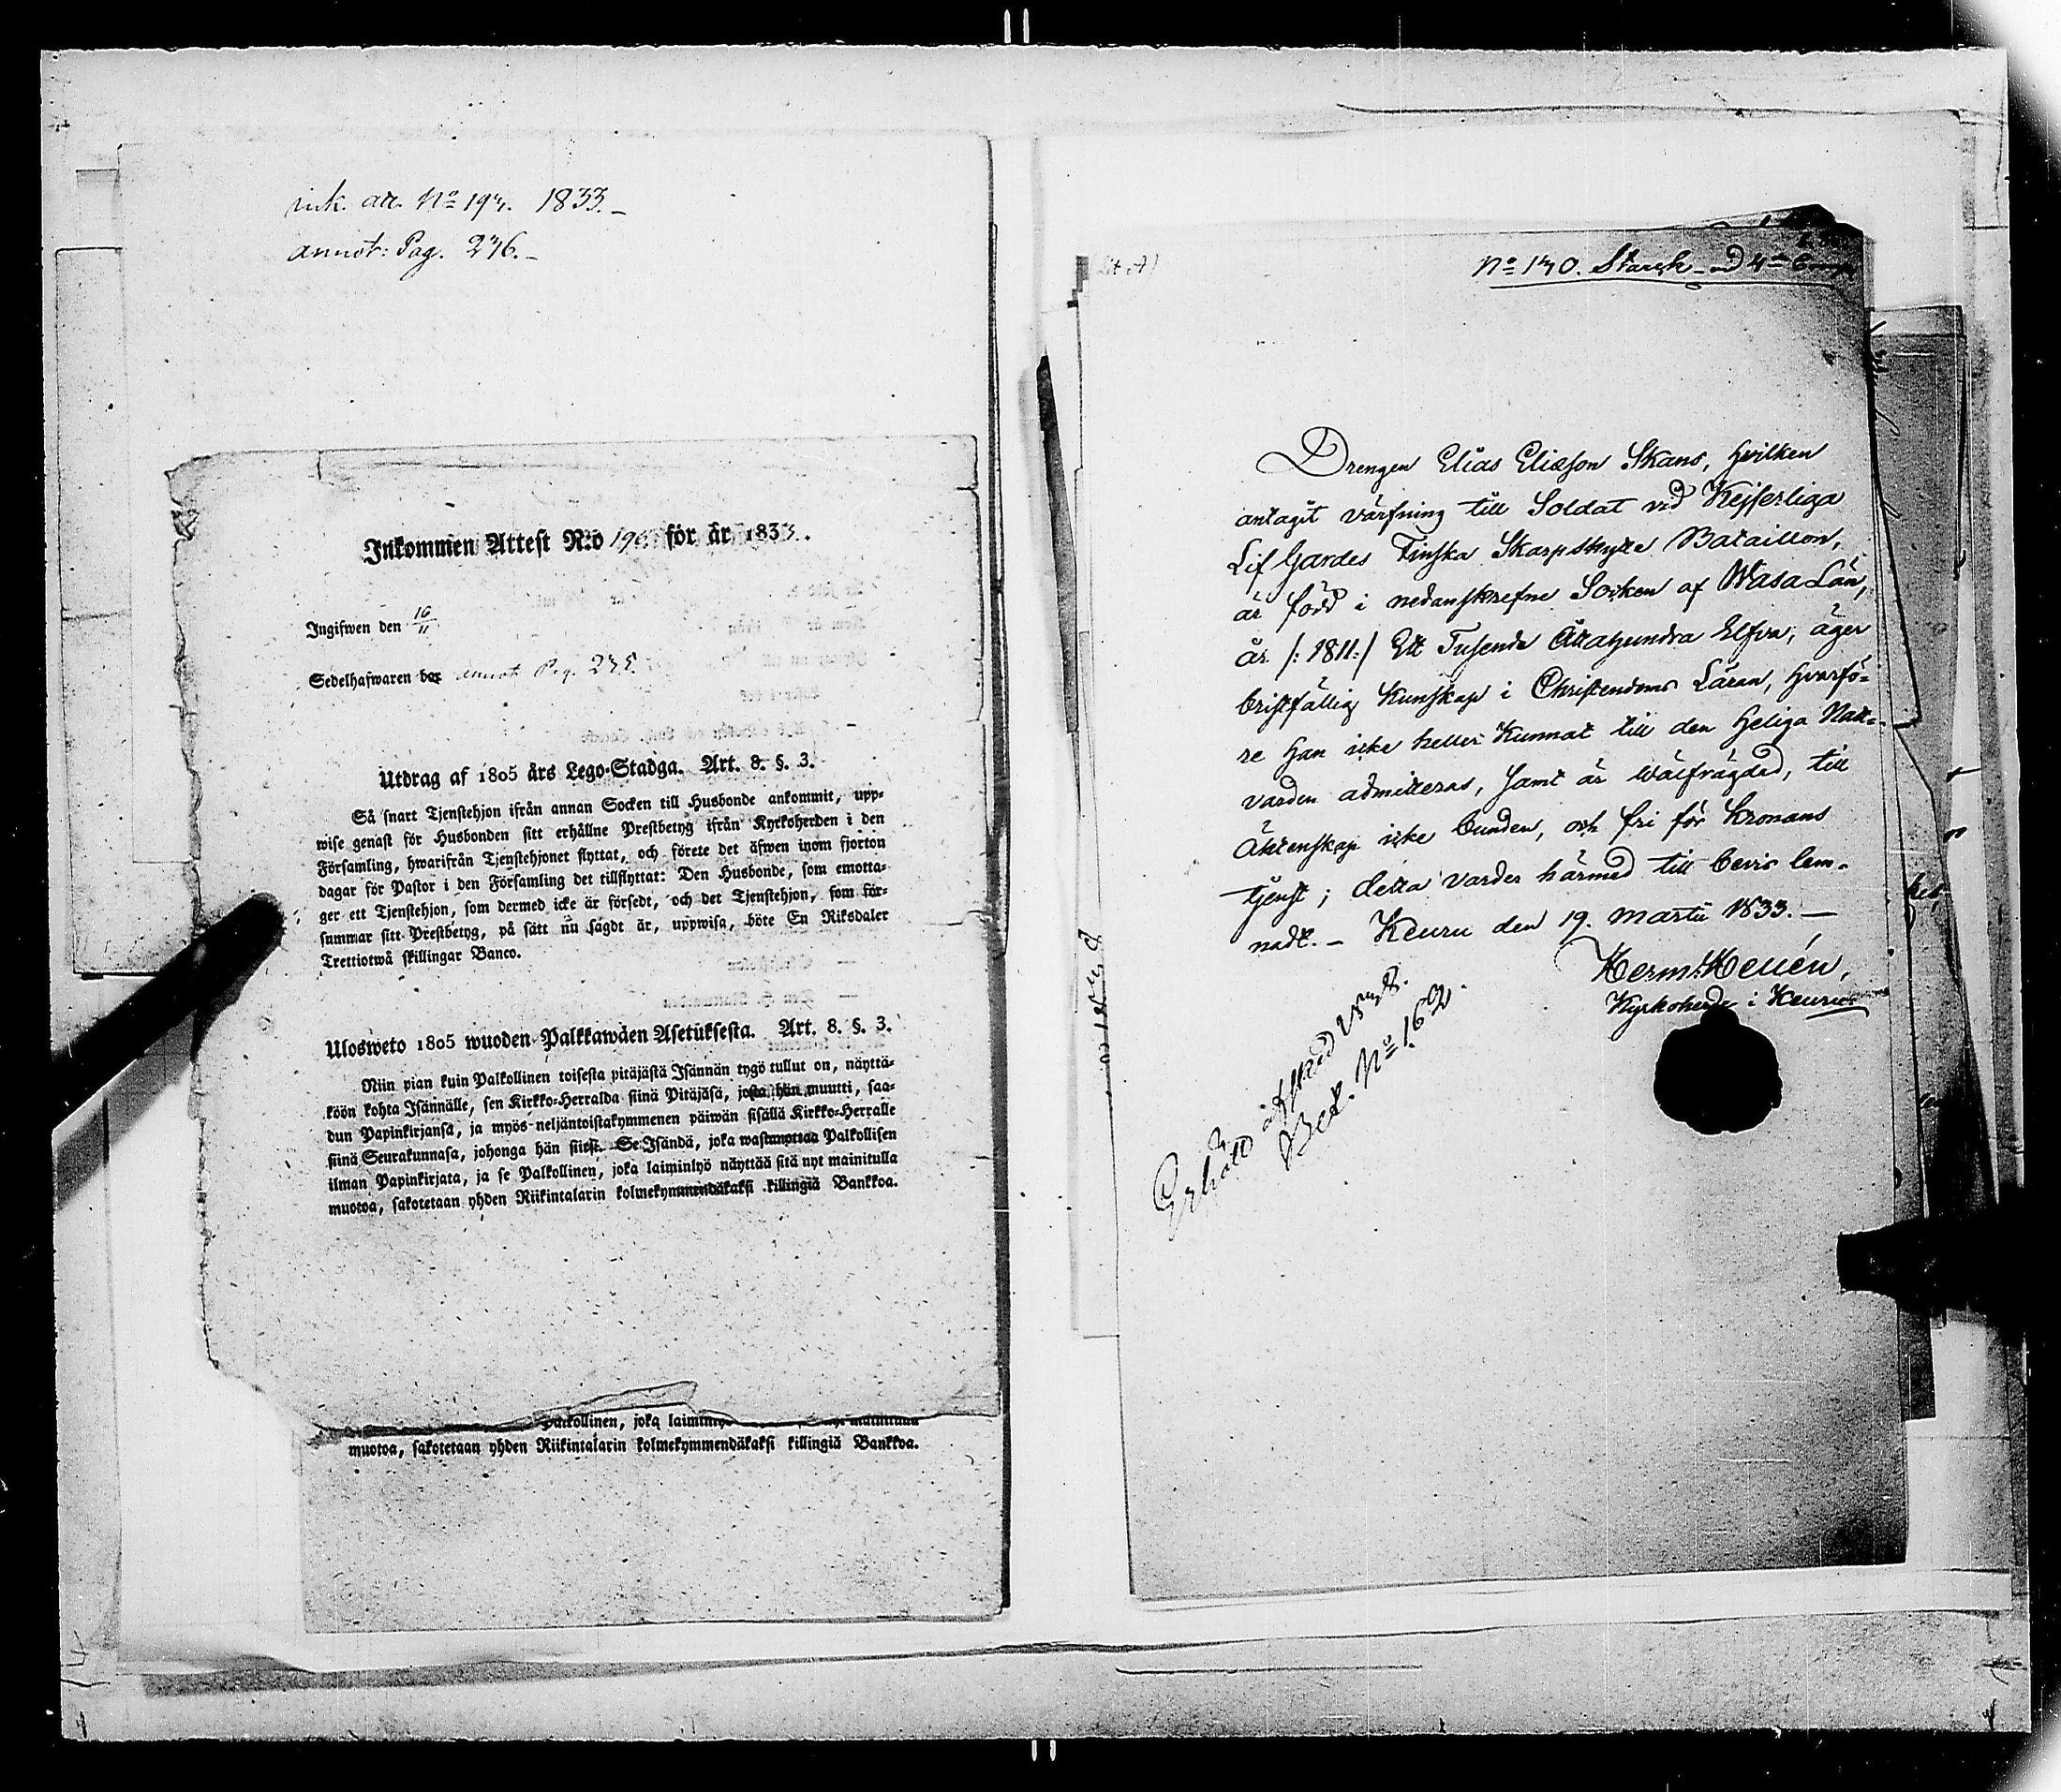 ink. att. No 194. 1833.–
annot: Pag. 246.–
Inkommen Attest N:o 190 för år 1833.
Ingifwen den 16/11
Sedelhafwaren bor annot. Pag. 245.
Utdrag af 1805 års Lego-Stadga. Art. 8. §. 3.
Så snart Tjenstehjon ifrån annan Socken till Husbonde ankommit, upp-
wise genast för Husbonden sitt erhållne Prestbetyg ifrån Kyrkoherden i den
Församling, hwarifrån Tjenstehjonet flyttat, och förete det äfwen inom fjorton
dagar för Pastor i den Församling det tillflyttat: Den Husbonde, som emotta-
ger ett Tjenstehjon, som dermed icke är försedt, och det Tjenstehjon, som för-
summar sitt Prestbetyg, på sätt nu sagdt är, uppwisa, böte En Riksdaler
Trettiotwå skillingar Banco.
Ulosweto 1805 wuoden Palkkawäen Asetuksesta. Art. 8. §. 3.
Niin pian kuin Palkollinen toisesta pitäjästä Isännän tygö tullut on, näyttä-
köön kohta Isännälle, sen Kirkko-Herralda siinä Pitäjäsä, josta hän muutti, saa-
dun Papinkirjansa, ja myös neljäntoistakymmenen päiwän sisällä Kirkko-Herralle
siinä Seurakunnasa, johonga hän siirsi. Se Isändä, joka wastanottaa Palkollisen
ilman Papinkirjata, ja se Palkollinen, joka laiminlyö näyttää sitä nyt mainitulla
muotoa, sakotetaan yhden Riikintalarin kolmekymmendäkaksi killingiä Bankkoa.
Palkollinen, joka
muotoa, sakotetaan yhden Riikintalarin kolmekymmendäkaksi killingiä Bankkoa.
Lit A)
No 140. Starck – vid 4de Comp
Drengen Elias Eliæson Skans, hvilken
antagit värfning till Soldat vid Kejserliga
Lif Gardes Finska Skarpskytte Bataillon,
är född i nedanskrefne Socken af Wasa Län,
år /: 1811:/ Ett Tusende Åttahundra Elfva, äger
bristfällig Kunskap i Christendoms Läran, hvarfö=
re han icke heller Kunnat till den Heliga Natt=
varden admitteras, samt är wälfrägdad, till
Äktenskap icke bunden, och fri för Kronans
tjenst; detta varder härmed till bevis lem-
nadt. – Keuru den 19. Martii 1833. –
Herm: Hellén,
Kyrkoherde i Keuru.
Erhöll afsked
Bet. No 162.